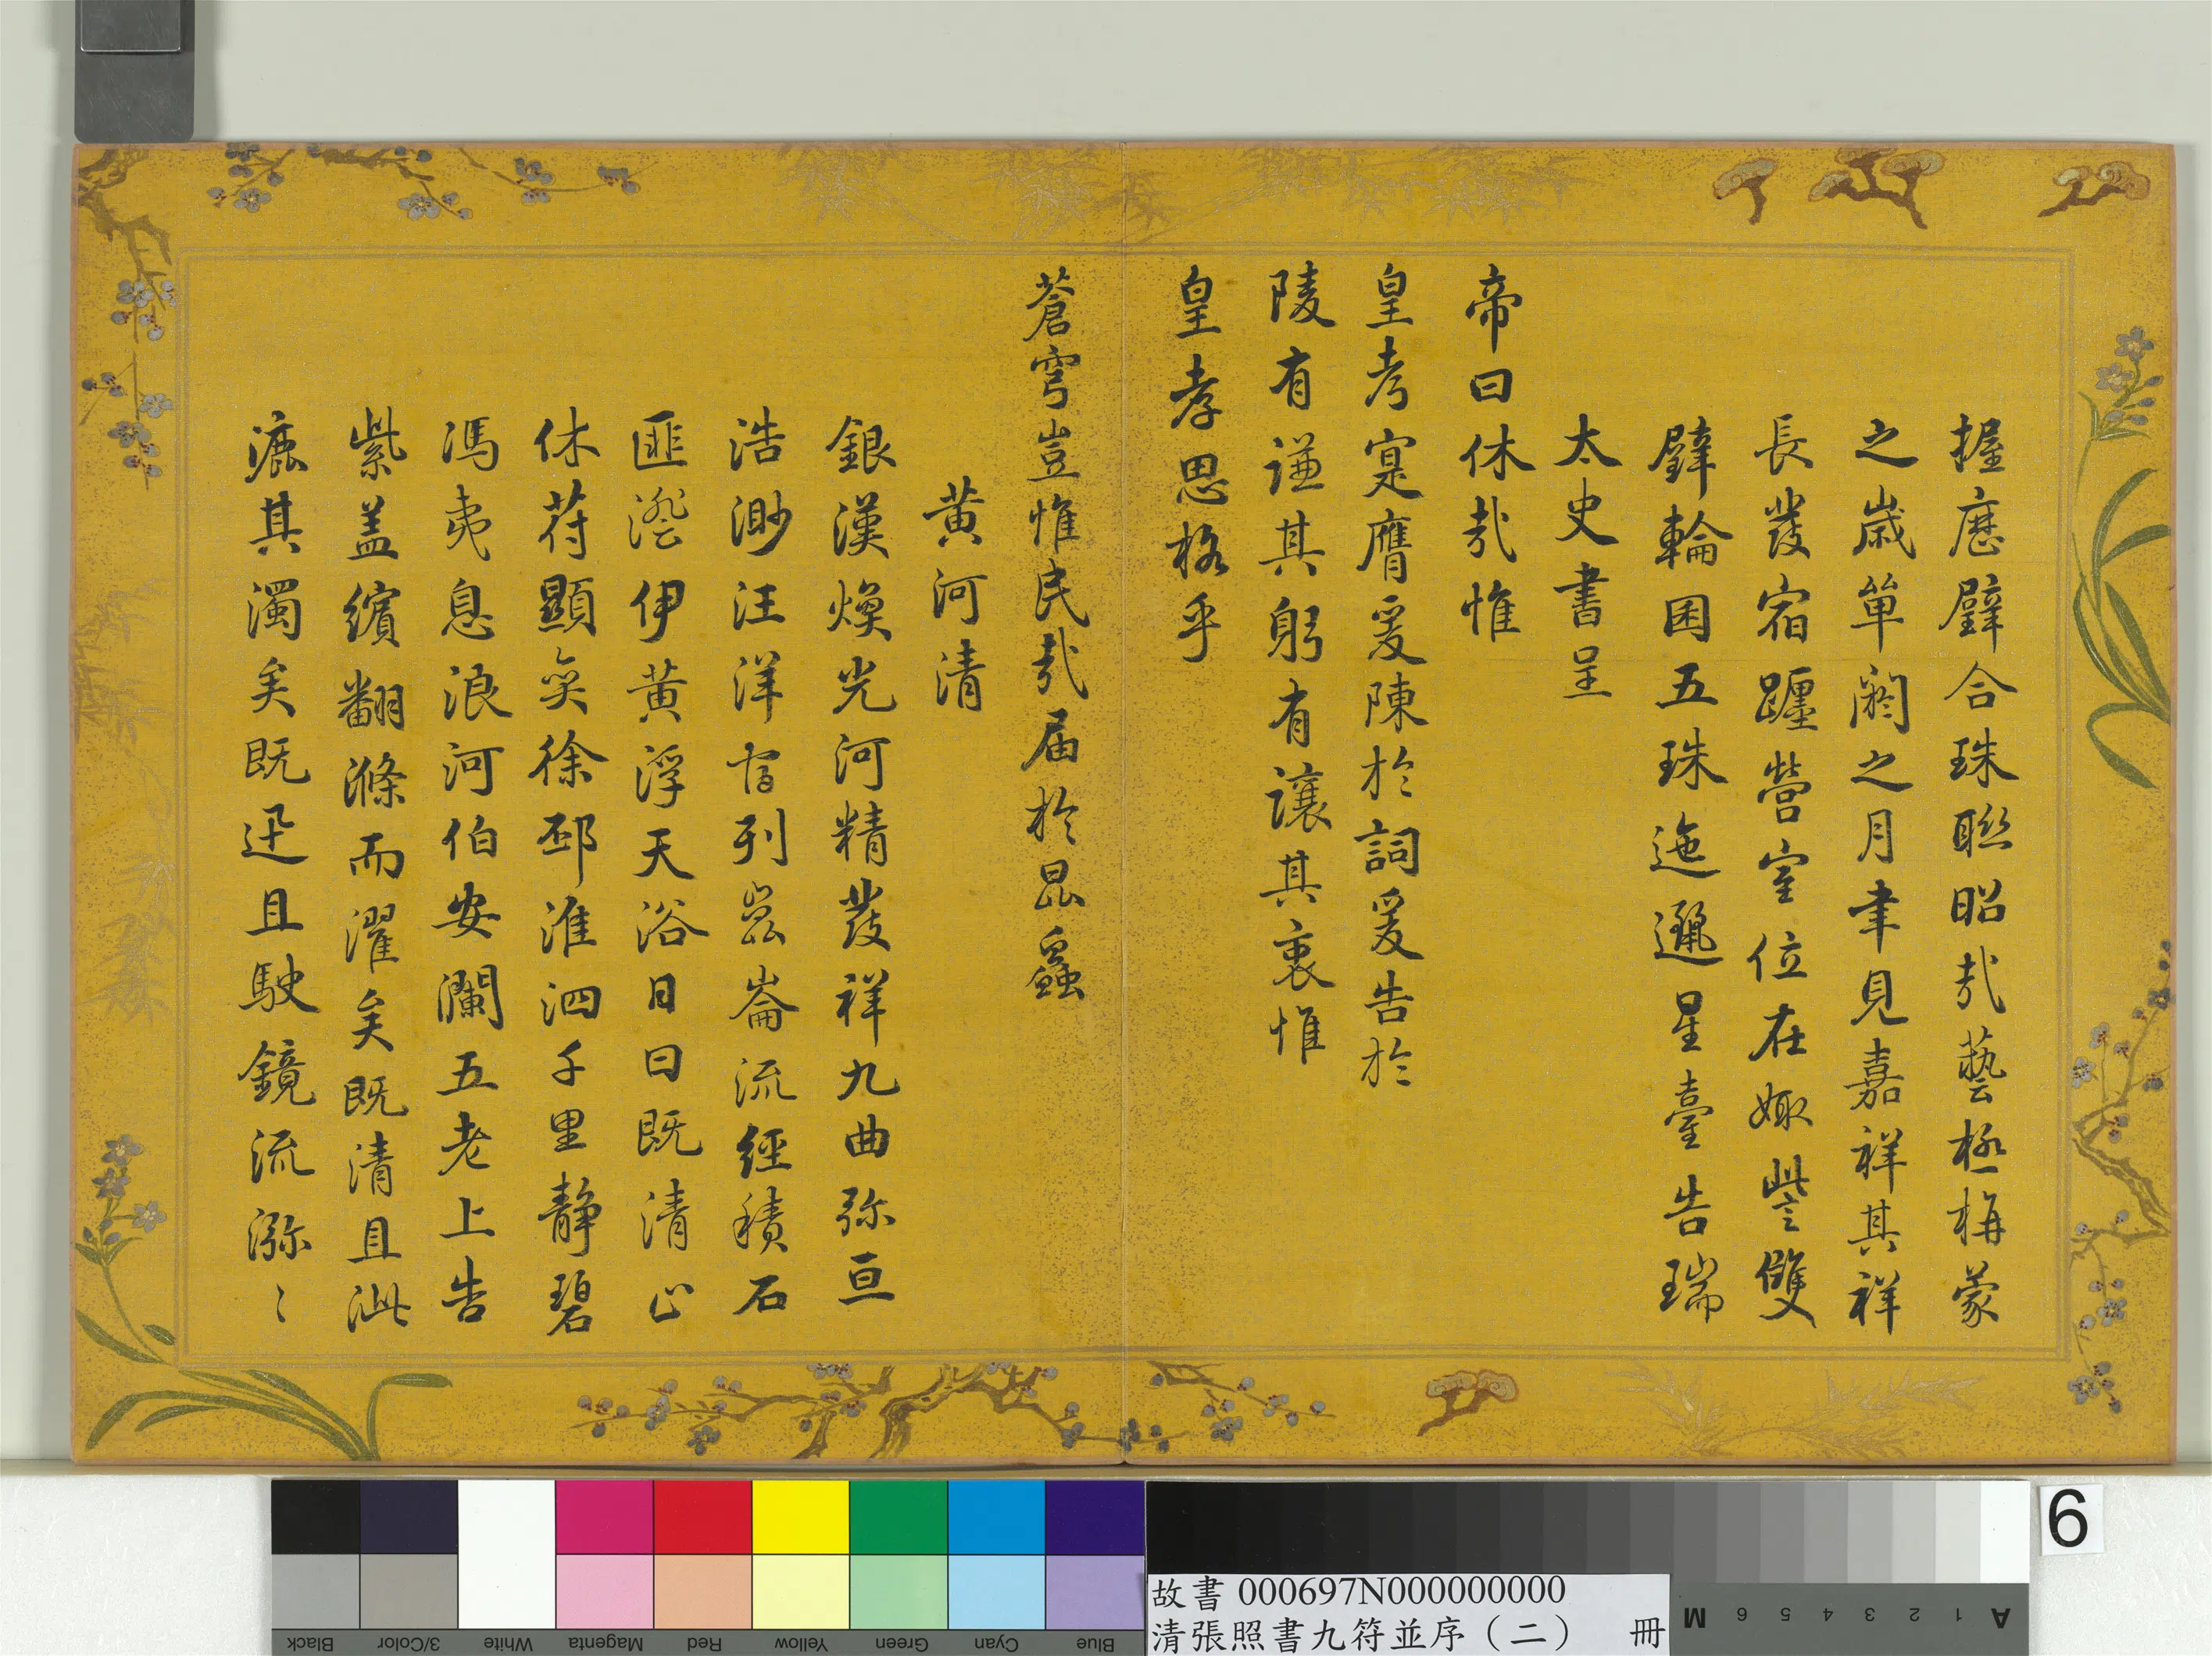 握歷璧合珠聯昭哉藝極旃蒙
之歲單閼之月聿見嘉祥其祥
長發宿躔營室位在娵訾雙
璧輪囷五珠迤邐星臺告瑞
太史書呈
帝曰休哉惟
皇考寔膺爰陳於詞爰告於
陵有謙其躬有讓其衷惟
皇孝思格乎
蒼穹豈惟民哉届於昆蟲
黃河清
銀漢煥光河精發祥九曲弥亘
浩渺汪洋宿列崑崙流經積石
匪澄伊黃浮天浴日曰既清止
休符顯奕徐邳淮泗千里靜碧
馮夷息浪河伯安瀾五老上告
紫蓋繽翻滌而濯矣既清且泚
漉其濁矣既迅且駛鏡流瀰〻
Black
3/Color
White
Magenta
Red
Yellow
Green
Cyan
Blue
故書 000697N000000000
清張照書九符並序（二） 冊
M 6 5 4 3 2 1 A
6